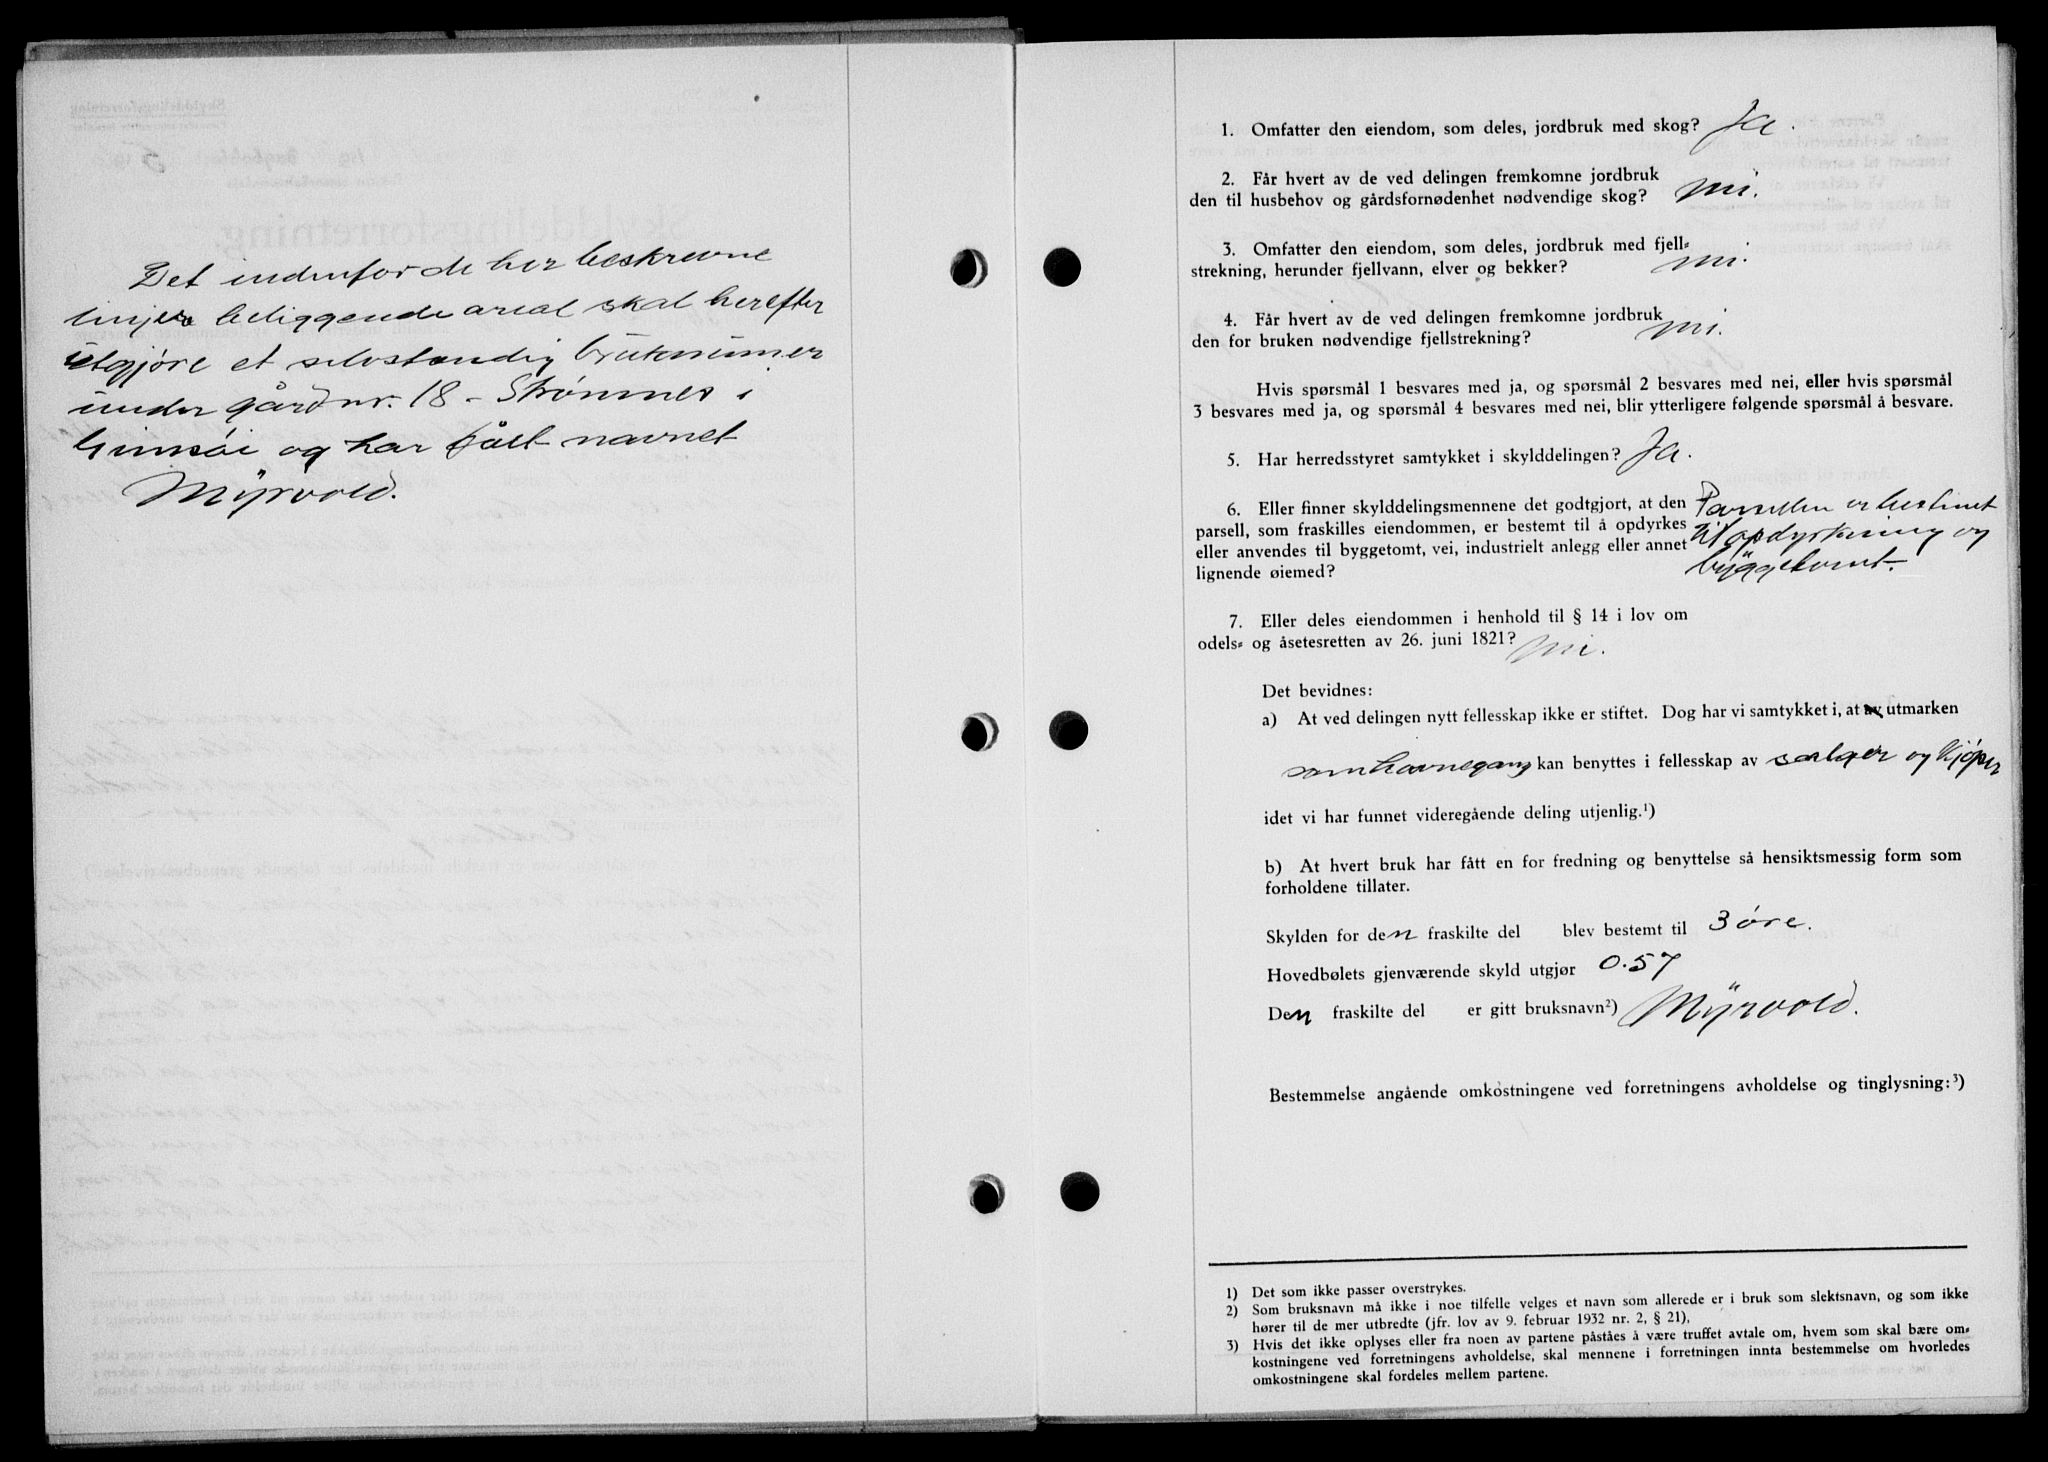 Det indenfor de her beskrevne
linjer beliggende areal skal herefter
utgjøre et selvstændig bruksnummer
under gård nr. 18 - Strømnes i
Gimsøi og har fått navnet
Myrvold.
1. Omfatter den eiendom, som deles, jordbruk med skog? Ja.
2. Får hvert av de ved delingen fremkomne jordbruk
den til husbehov og gårdsfornødenhet nødvendige skog? nei.
3. Omfatter den eiendom, som deles, jordbruk med fjell-
strekning, herunder fjellvann, elver og bekker? nei.
4. Får hvert av de ved delingen fremkomne jordbruk
den for bruken nødvendige fjellstrekning? nei.
Hvis spørsmål 1 besvares med ja, og spørsmål 2 besvares med nei, eller hvis spørsmål
3 besvares med ja, og spørsmål 4 besvares med nei, blir ytterligere følgende spørsmål å besvare.
5. Har herredsstyret samtykket i skylddelingen? Ja.
6. Eller finner skylddelingsmennene det godtgjort, at den
parsell, som fraskilles eiendommen, er bestemt til å opdyrkes
eller anvendes til byggetomt, vei, industrielt anlegg eller annet
lignende øiemed?
Parsellen er bestemt
til opdyrkning og
byggetomt.
7. Eller deles eiendommen i henhold til § 14 i lov om
odels- og åsetesretten av 26. juni 1821? nei.
Det bevidnes:
a) At ved delingen nytt fellesskap ikke er stiftet. Dog har vi samtykket i, at av utmarken
som havnegang kan benyttes i fellesskap av selger og kjøper
idet vi har funnet videregående deling utjenlig.¹)
b) At hvert bruk har fått en for fredning og benyttelse så hensiktsmessig form som
forholdene tillater.
Skylden for den fraskilte del blev bestemt til 3 øre.
Hovedbølets gjenværende skyld utgjør 0.57
Den fraskilte del er gitt bruksnavn²) Myrvold.
Bestemmelse angående omkostningene ved forretningens avholdelse og tinglysning:³)
1) Det som ikke passer overstrykes.
2) Som bruksnavn må ikke i noe tilfelle velges et navn som allerede er i bruk som slektsnavn, og som ikke
hører til de mer utbredte (jfr. lov av 9. februar 1932 nr. 2, § 21),
3) Hvis det ikke oplyses eller fra noen av partene påståes å være truffet avtale om, hvem som skal bære om-
kostningene ved forretningens avholdelse, skal mennene i forretningen innta bestemmelse om hvorledes
omkostningene skal fordeles mellem partene.